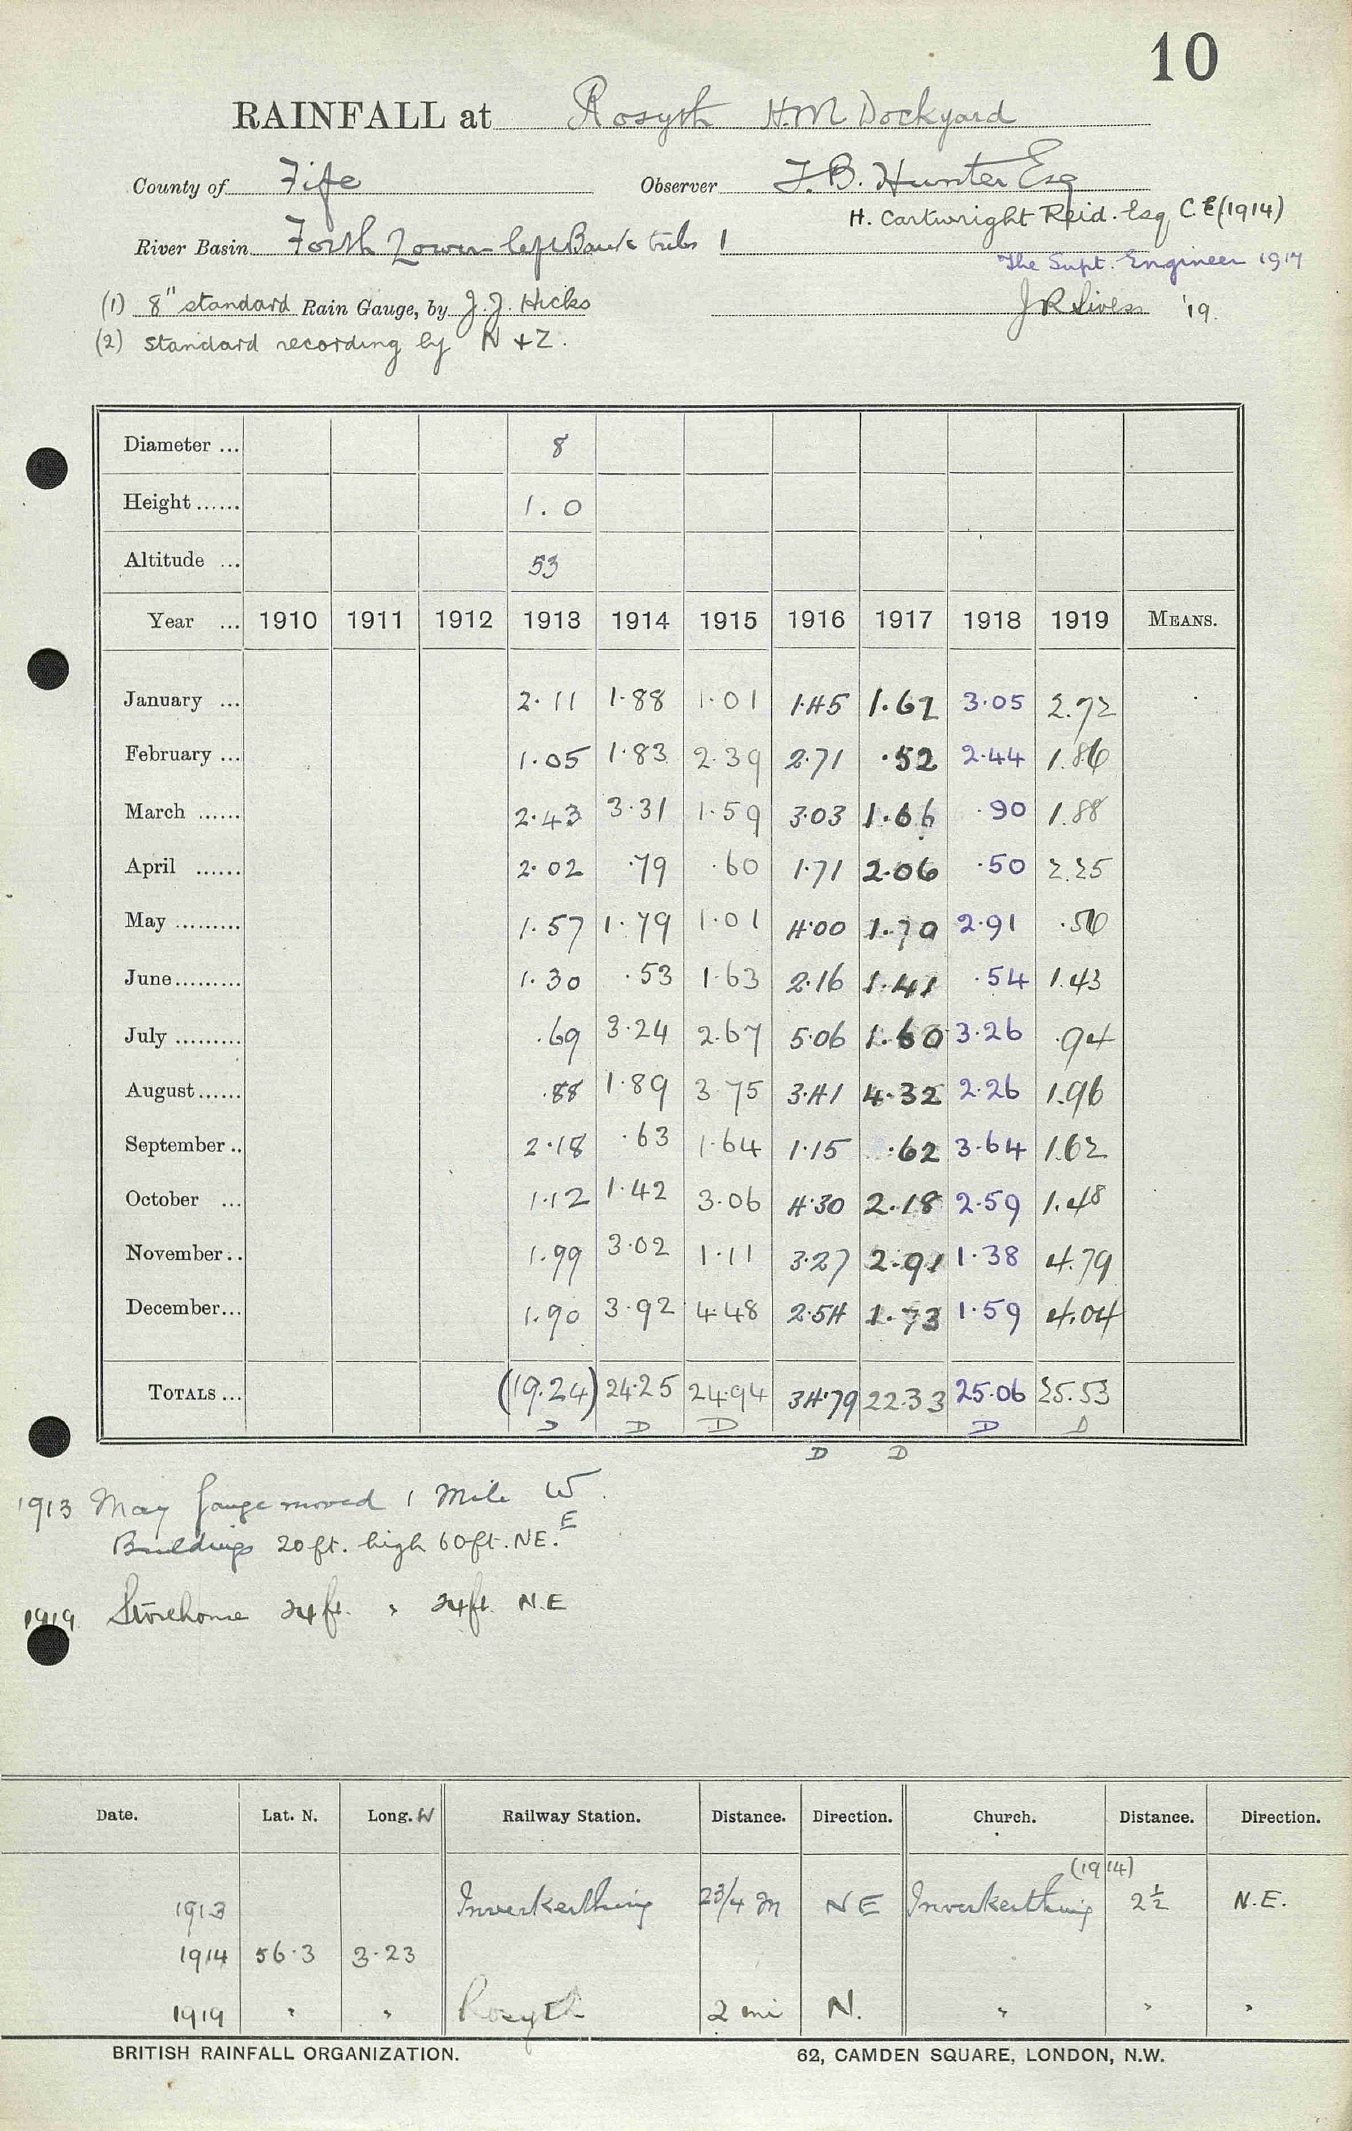 10
RAINFALL at Rosyth H.M Dockyard
County of Fife Observer F.B. Hunter Esq
H. Cartwright Reid. Esq C.E (1914)
River Basin Forth Lower left Bank tribs 1
The Supt. Engineer 1917
(1) 8" standard Rain Gauge, by J.J. Hicks
J R Sivess '19.
(2) standard recording by N + Z.
Diameter ... 8
Height ...... 1.0
Altitude ... 53
Year ... 1910 1911 1912 1913 1914 1915 1916 1917 1918 1919 MEANS.
January ... 2.11 1.88 1.01 1.45 1.62 3.05 2.72
February ... 1.05 1.83 2.39 2.71 .52 2.44 1.86
March ...... 2.43 3.31 1.59 3.03 1.66 .90 1.88
April ...... 2.02 .79 .60 1.71 2.06 .50 2.25
May ......... 1.57 1.79 1.01 4.00 1.70 2.91 .56
June......... 1.30 .53 1.63 2.16 1.41 .54 1.43
July ......... .69 3.24 2.67 5.06 1.60 3.26 .94
August...... .88 1.89 3.75 3.41 4.32 2.26 1.96
September .. 2.18 .63 1.64 1.15 .62 3.64 1.62
October ... 1.12 1.42 3.06 4.30 2.18 2.59 1.48
November .. 1.99 3.02 1.11 3.27 2.91 1.38 4.79
December... 1.90 3.92 4.48 2.54 1.73 1.59 4.04
TOTALS ... (19.24) 24.25 24.94 34.79 22.33 25.06 25.53
D D D D D D D
1913 May gauge moved 1 Mile W.
Buildings 20 ft. high 60 ft. NE. E
1919 Storehouse 24 ft. " 24 ft. N.E
Date. Lat. N. Long. W Railway Station. Distance. Direction. Church. Distance. Direction.
(1914)
1913 Inverkeithing 2 3/4 m NE Inverkeithing 2 ½ N.E.
1914 56.3 3.23
1919 " " Rosyth 2 mi N. " " "
BRITISH RAINFALL ORGANIZATION. 62, CAMDEN SQUARE, LONDON, N.W.